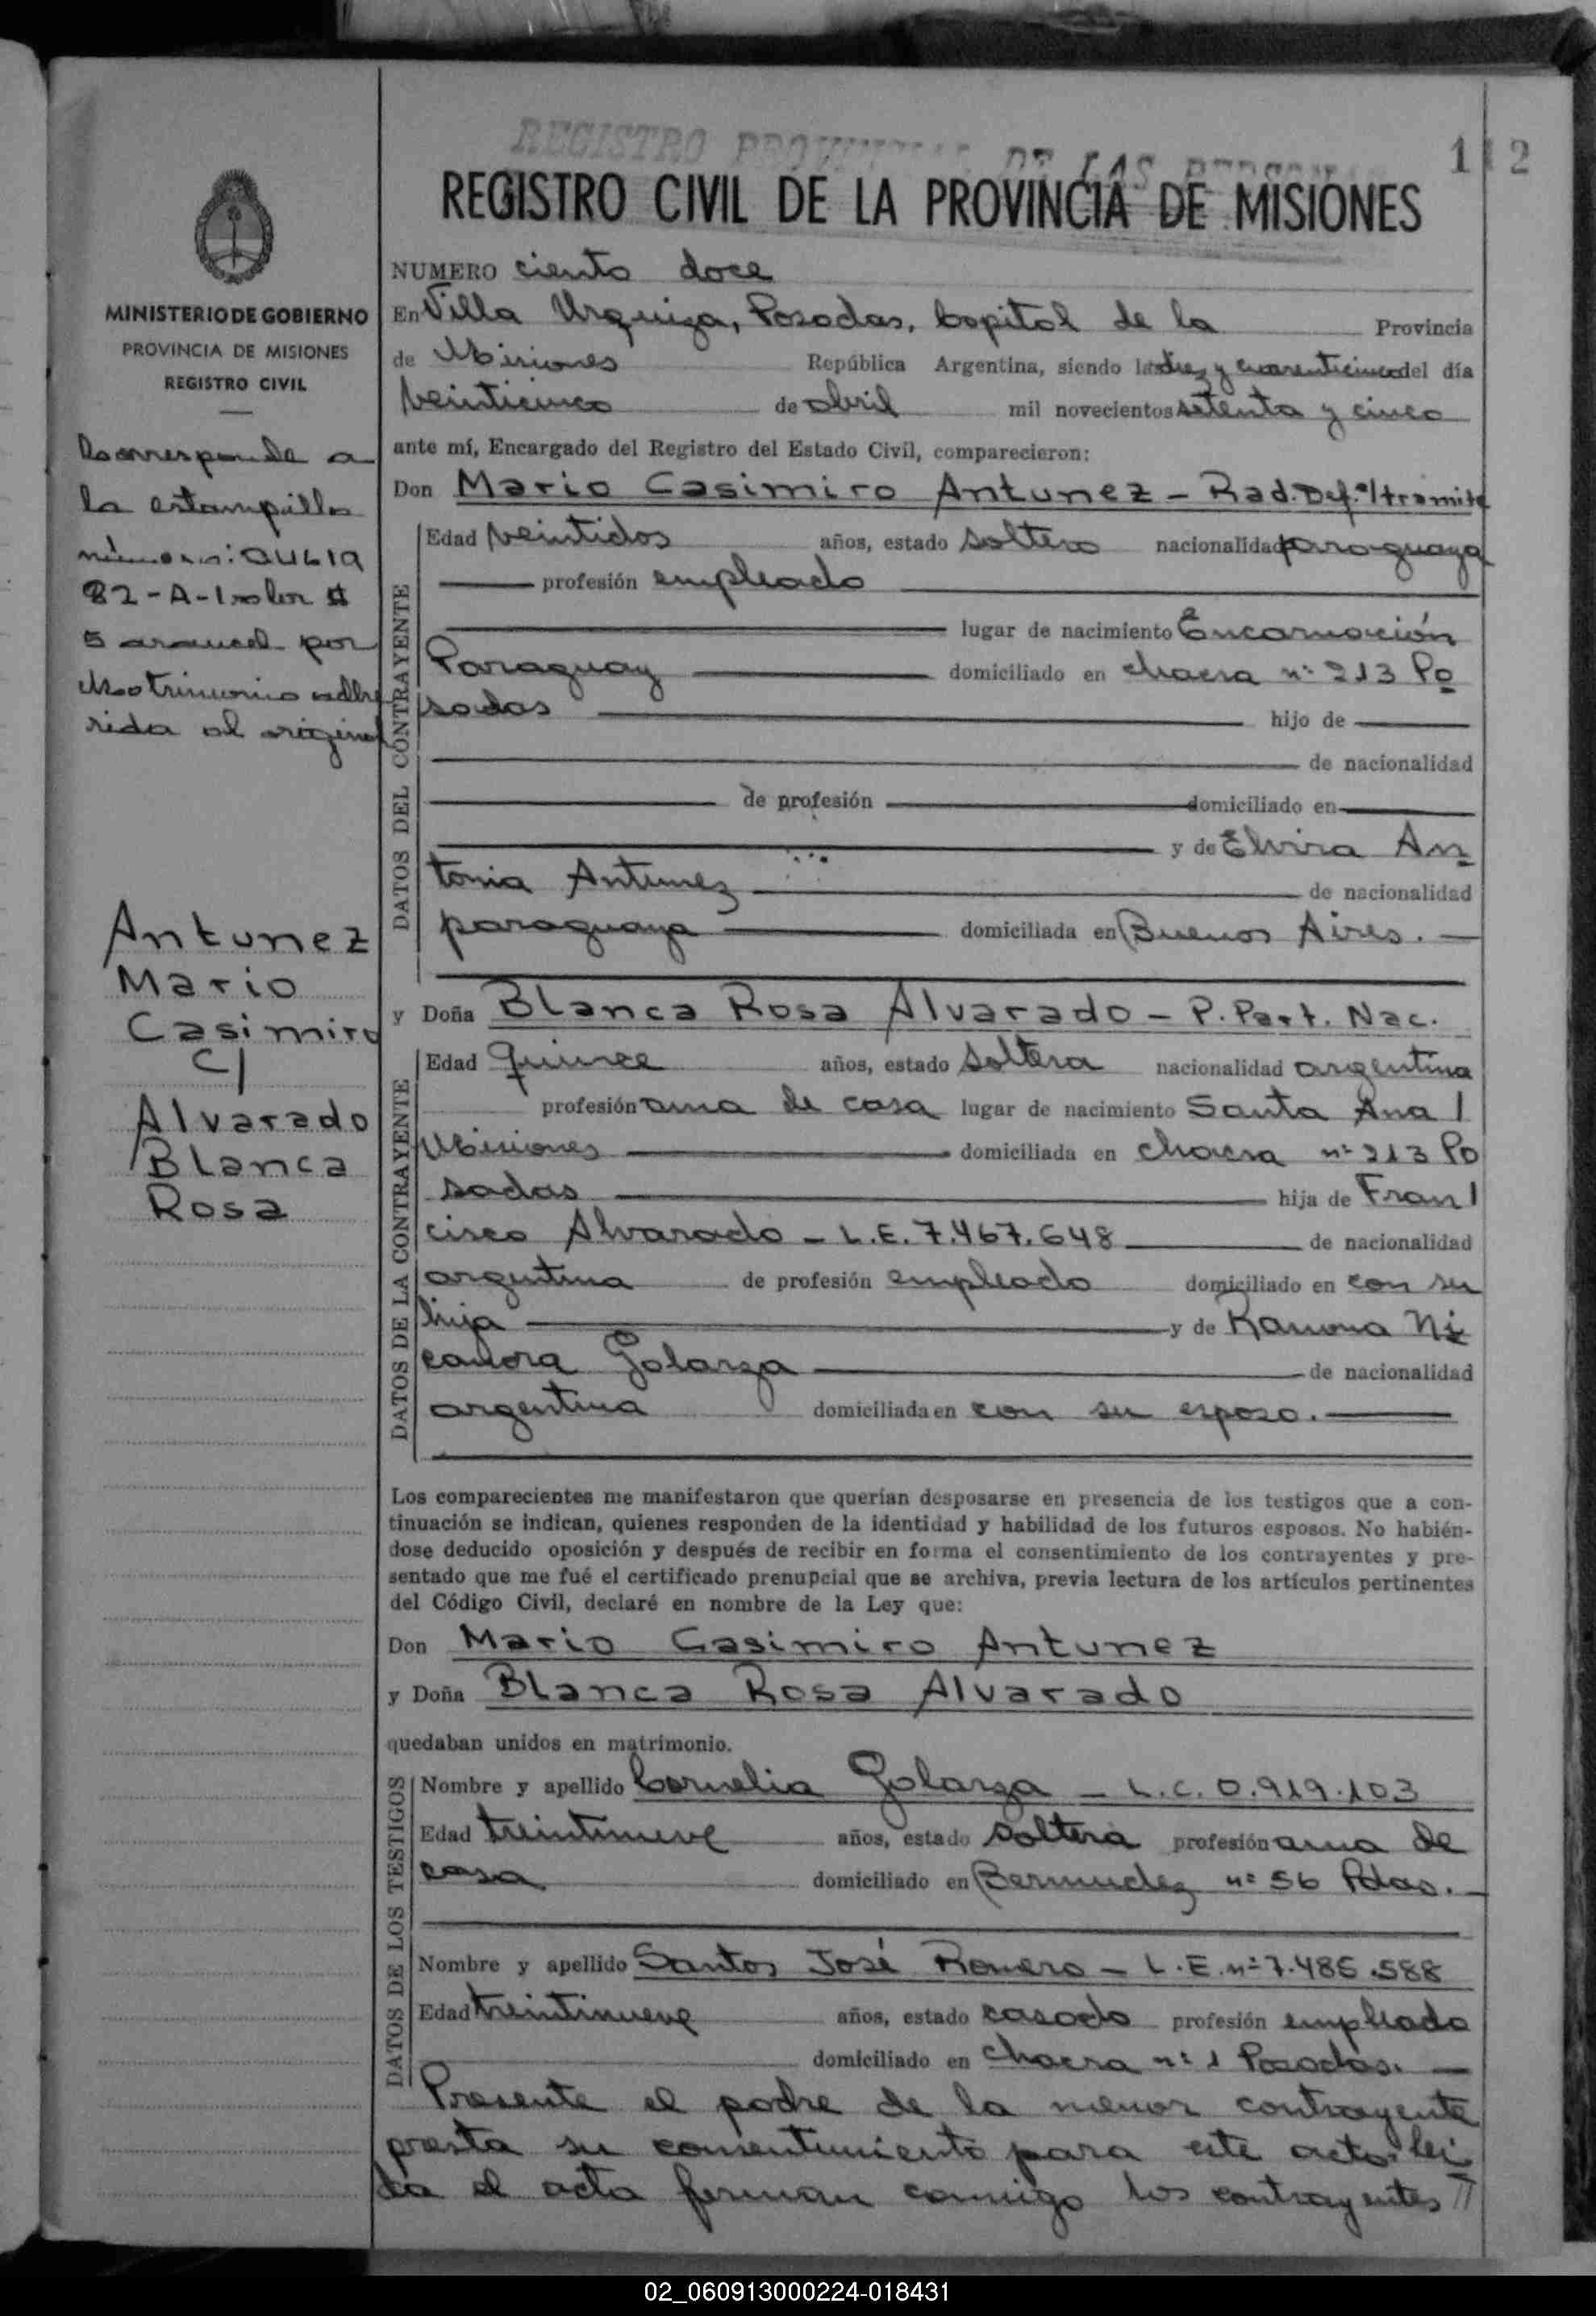 REGISTRO PROVINCIAL DE LAS PERSON
112
REGISTRO CIVIL DE LA PROVINCIA DE MISIONES
MINISTERIO DE GOBIERNO
PROVINCIA DE MISIONES
REGISTRO CIVIL
Corresponde a
la estampilla
número: 04619
82-A-1 valor $
5 arancel por
Matrimonio adhe
rida al original
Antunez
Mario
Casimiro
C/
Alvarado
Blanca
Rosa
NUMERO ciento doce
En Villa Urquiza, Posadas, Capital de la Provincia
de Misiones República Argentina, siendo las diez y cuarenticinco del día
veinticinco de abril mil novecientos setenta y cinco
ante mí, Encargado del Registro del Estado Civil, comparecieron:
Don Mario Casimiro Antunez - Rad. Def. e/tramite
DATOS DEL CONTRAYENTE
Edad veintidos años, estado soltero nacionalidad paraguaya
profesión empleado
lugar de nacimiento Encarnación
Paraguay domiciliado en chacra nº 213 Po
sadas hijo de
de nacionalidad
de profesión domiciliado en
y de Elvira An
tonia Antunez de nacionalidad
paraguaya domiciliada en Buenos Aires.
y Doña Blanca Rosa Alvarado - P. Part. Nac.
DATOS DE LA CONTRAYENTE
Edad quince años, estado soltera nacionalidad argentina
profesión ama de casa lugar de nacimiento Santa Ana /
Misiones domiciliada en chacra nº 213 Po
sadas hija de Fran/
cisco Alvarado - L.E. 7.467.648 de nacionalidad
argentina de profesión empleado domiciliado en con su
hija y de Ramona Ni
canora Golarza de nacionalidad
argentina domiciliada en con su esposo.
Los comparecientes me manifestaron que querían desposarse en presencia de los testigos que a con-
tinuación se indican, quienes responden de la identidad y habilidad de los futuros esposos. No habién-
dose deducido oposición y después de recibir en forma el consentimiento de los contrayentes y pre-
sentado que me fué el certificado prenupcial que se archiva, previa lectura de los artículos pertinentes
del Código Civil, declaré en nombre de la Ley que:
Don Mario Casimiro Antunez
y Doña Blanca Rosa Alvarado
quedaban unidos en matrimonio.
DATOS DE LOS TESTIGOS
Nombre y apellido Cornelia Golarza - L.C. 0.919.103
Edad treintinueve años, estado soltera profesión ama de
casa domiciliado en Bermudez nº 56 Pdas.
Nombre y apellido Santos José Romero - L.E. nº 7.485.588
Edad treintinueve años, estado casado profesión empleado
domiciliado en chacra nº 1 Posadas.
Presente el padre de la menor contrayente
presta su consentimiento para este acto. lei
da el acta firman conmigo los contrayentes //
02_060913000224-018431